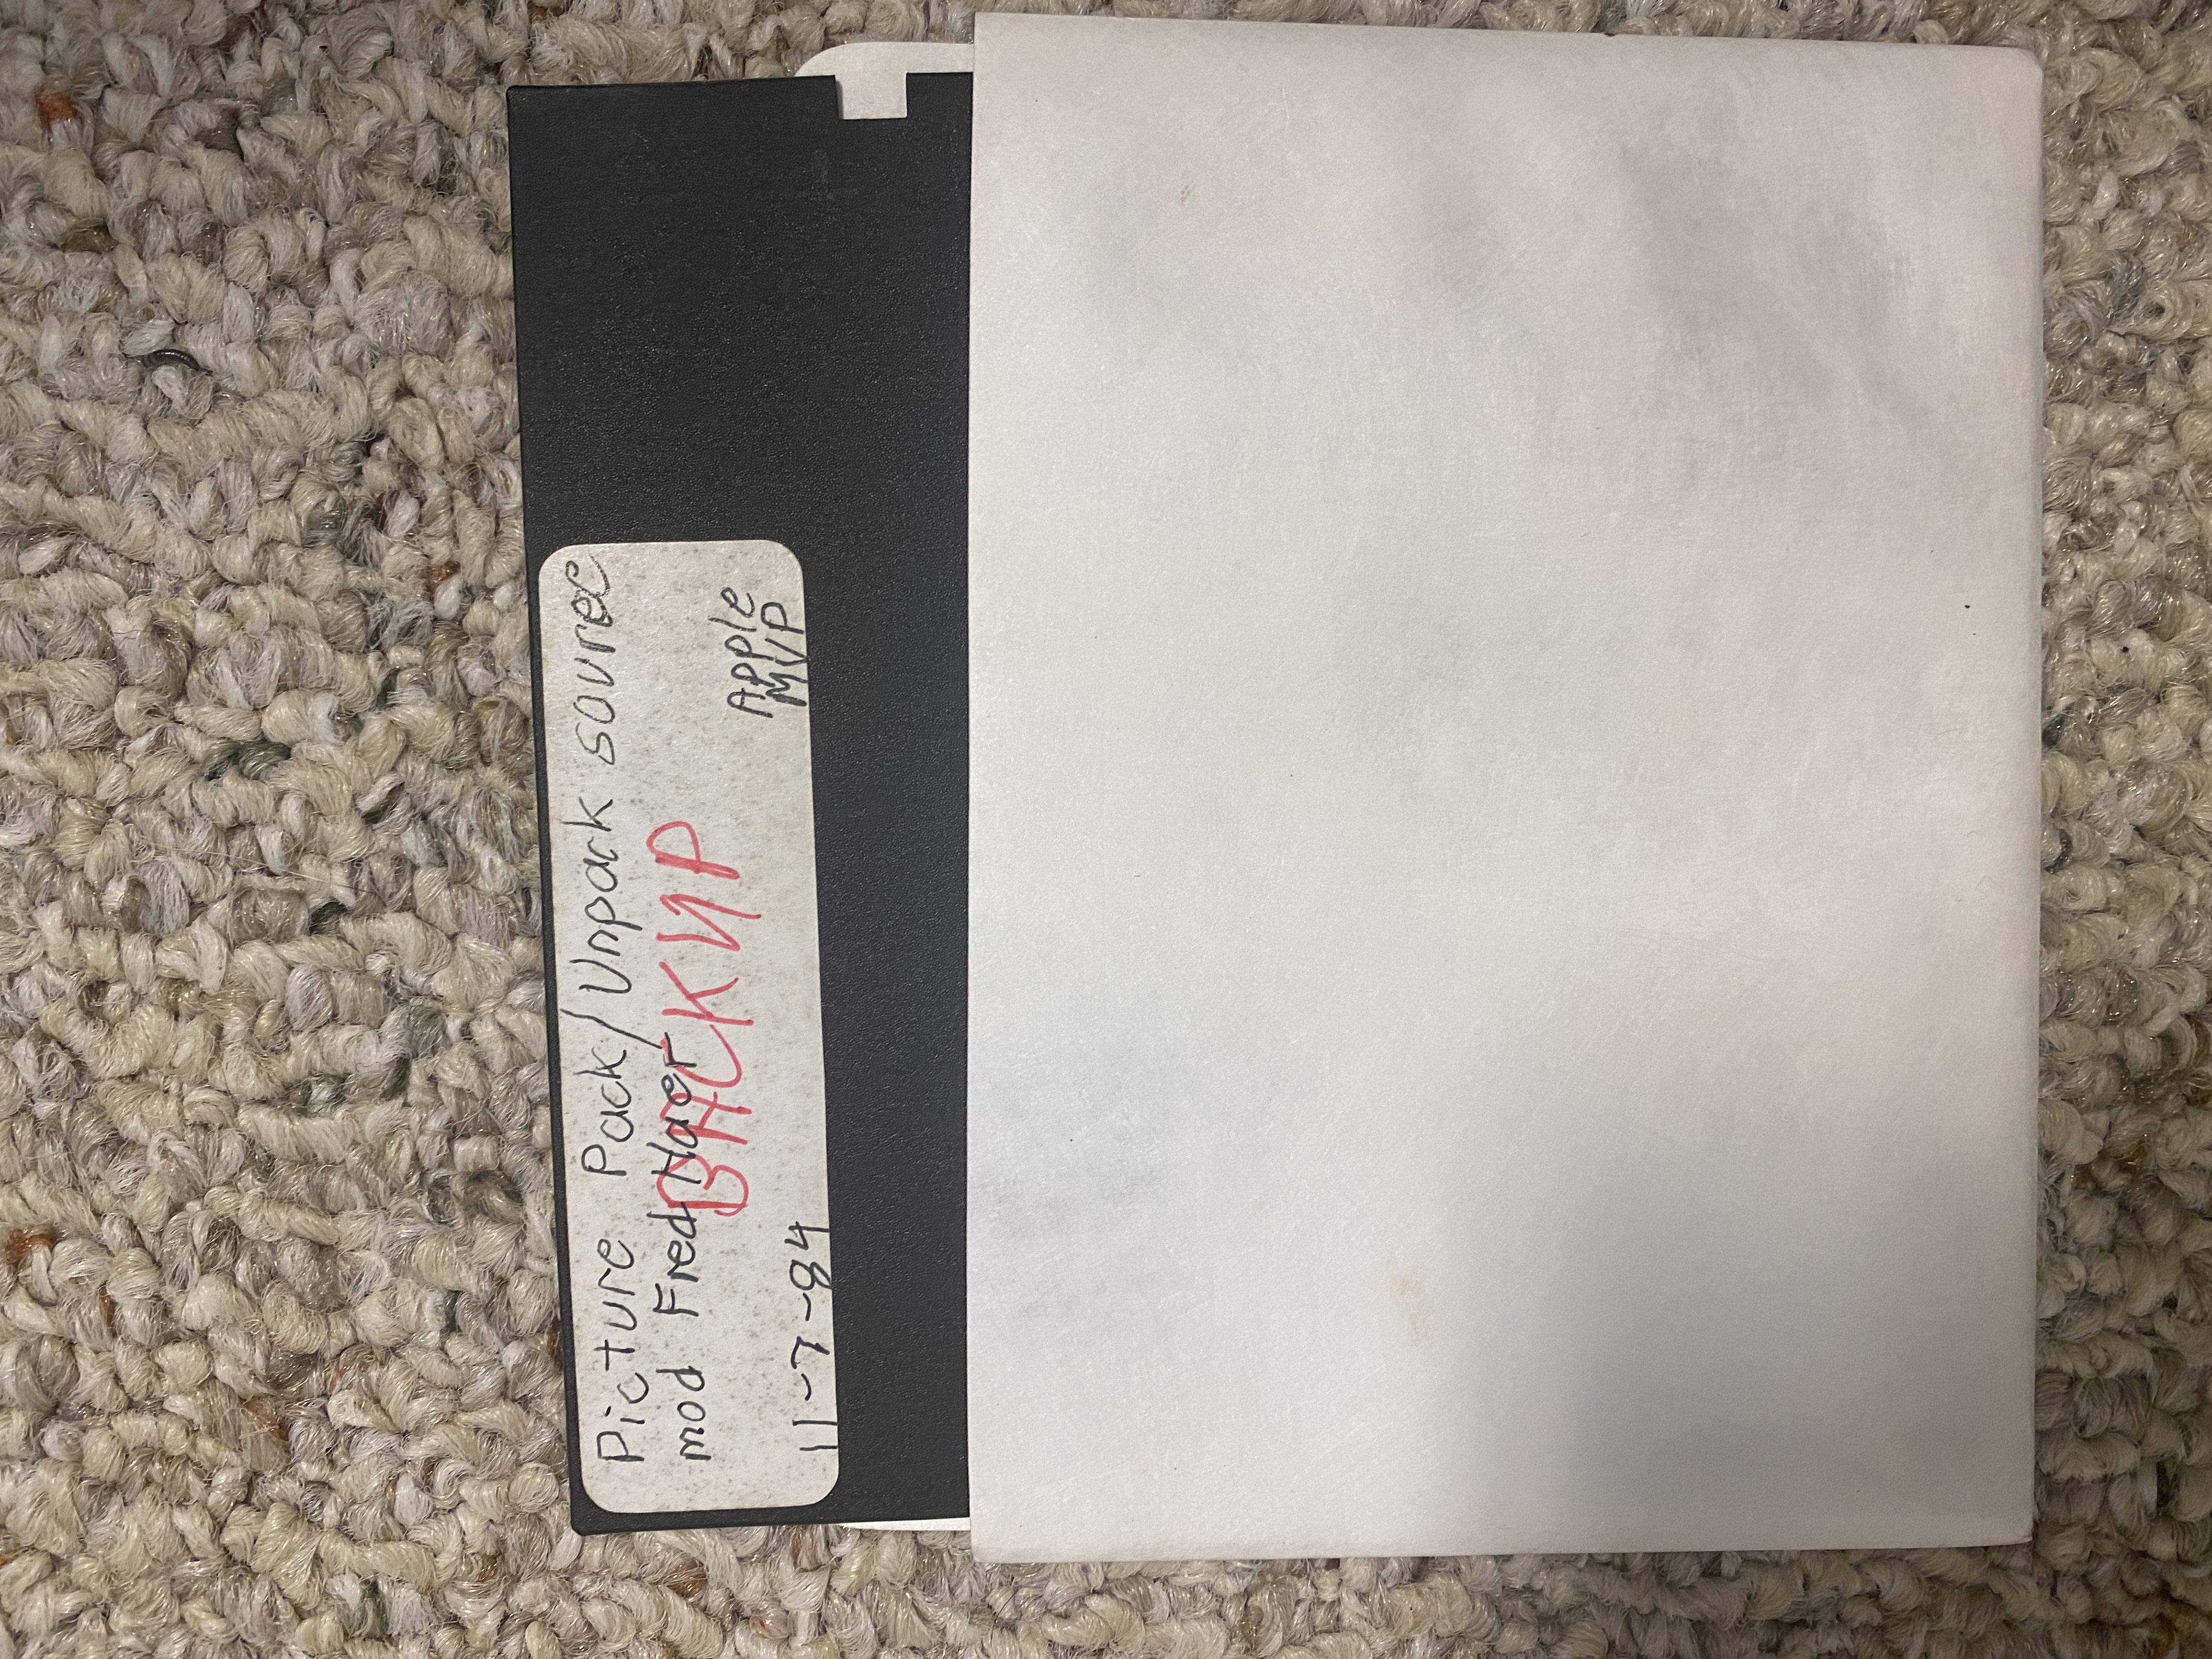 Picture Pack/Unpack source
mod Fred Haer
BACKUP
Apple
MVP
11-7-84